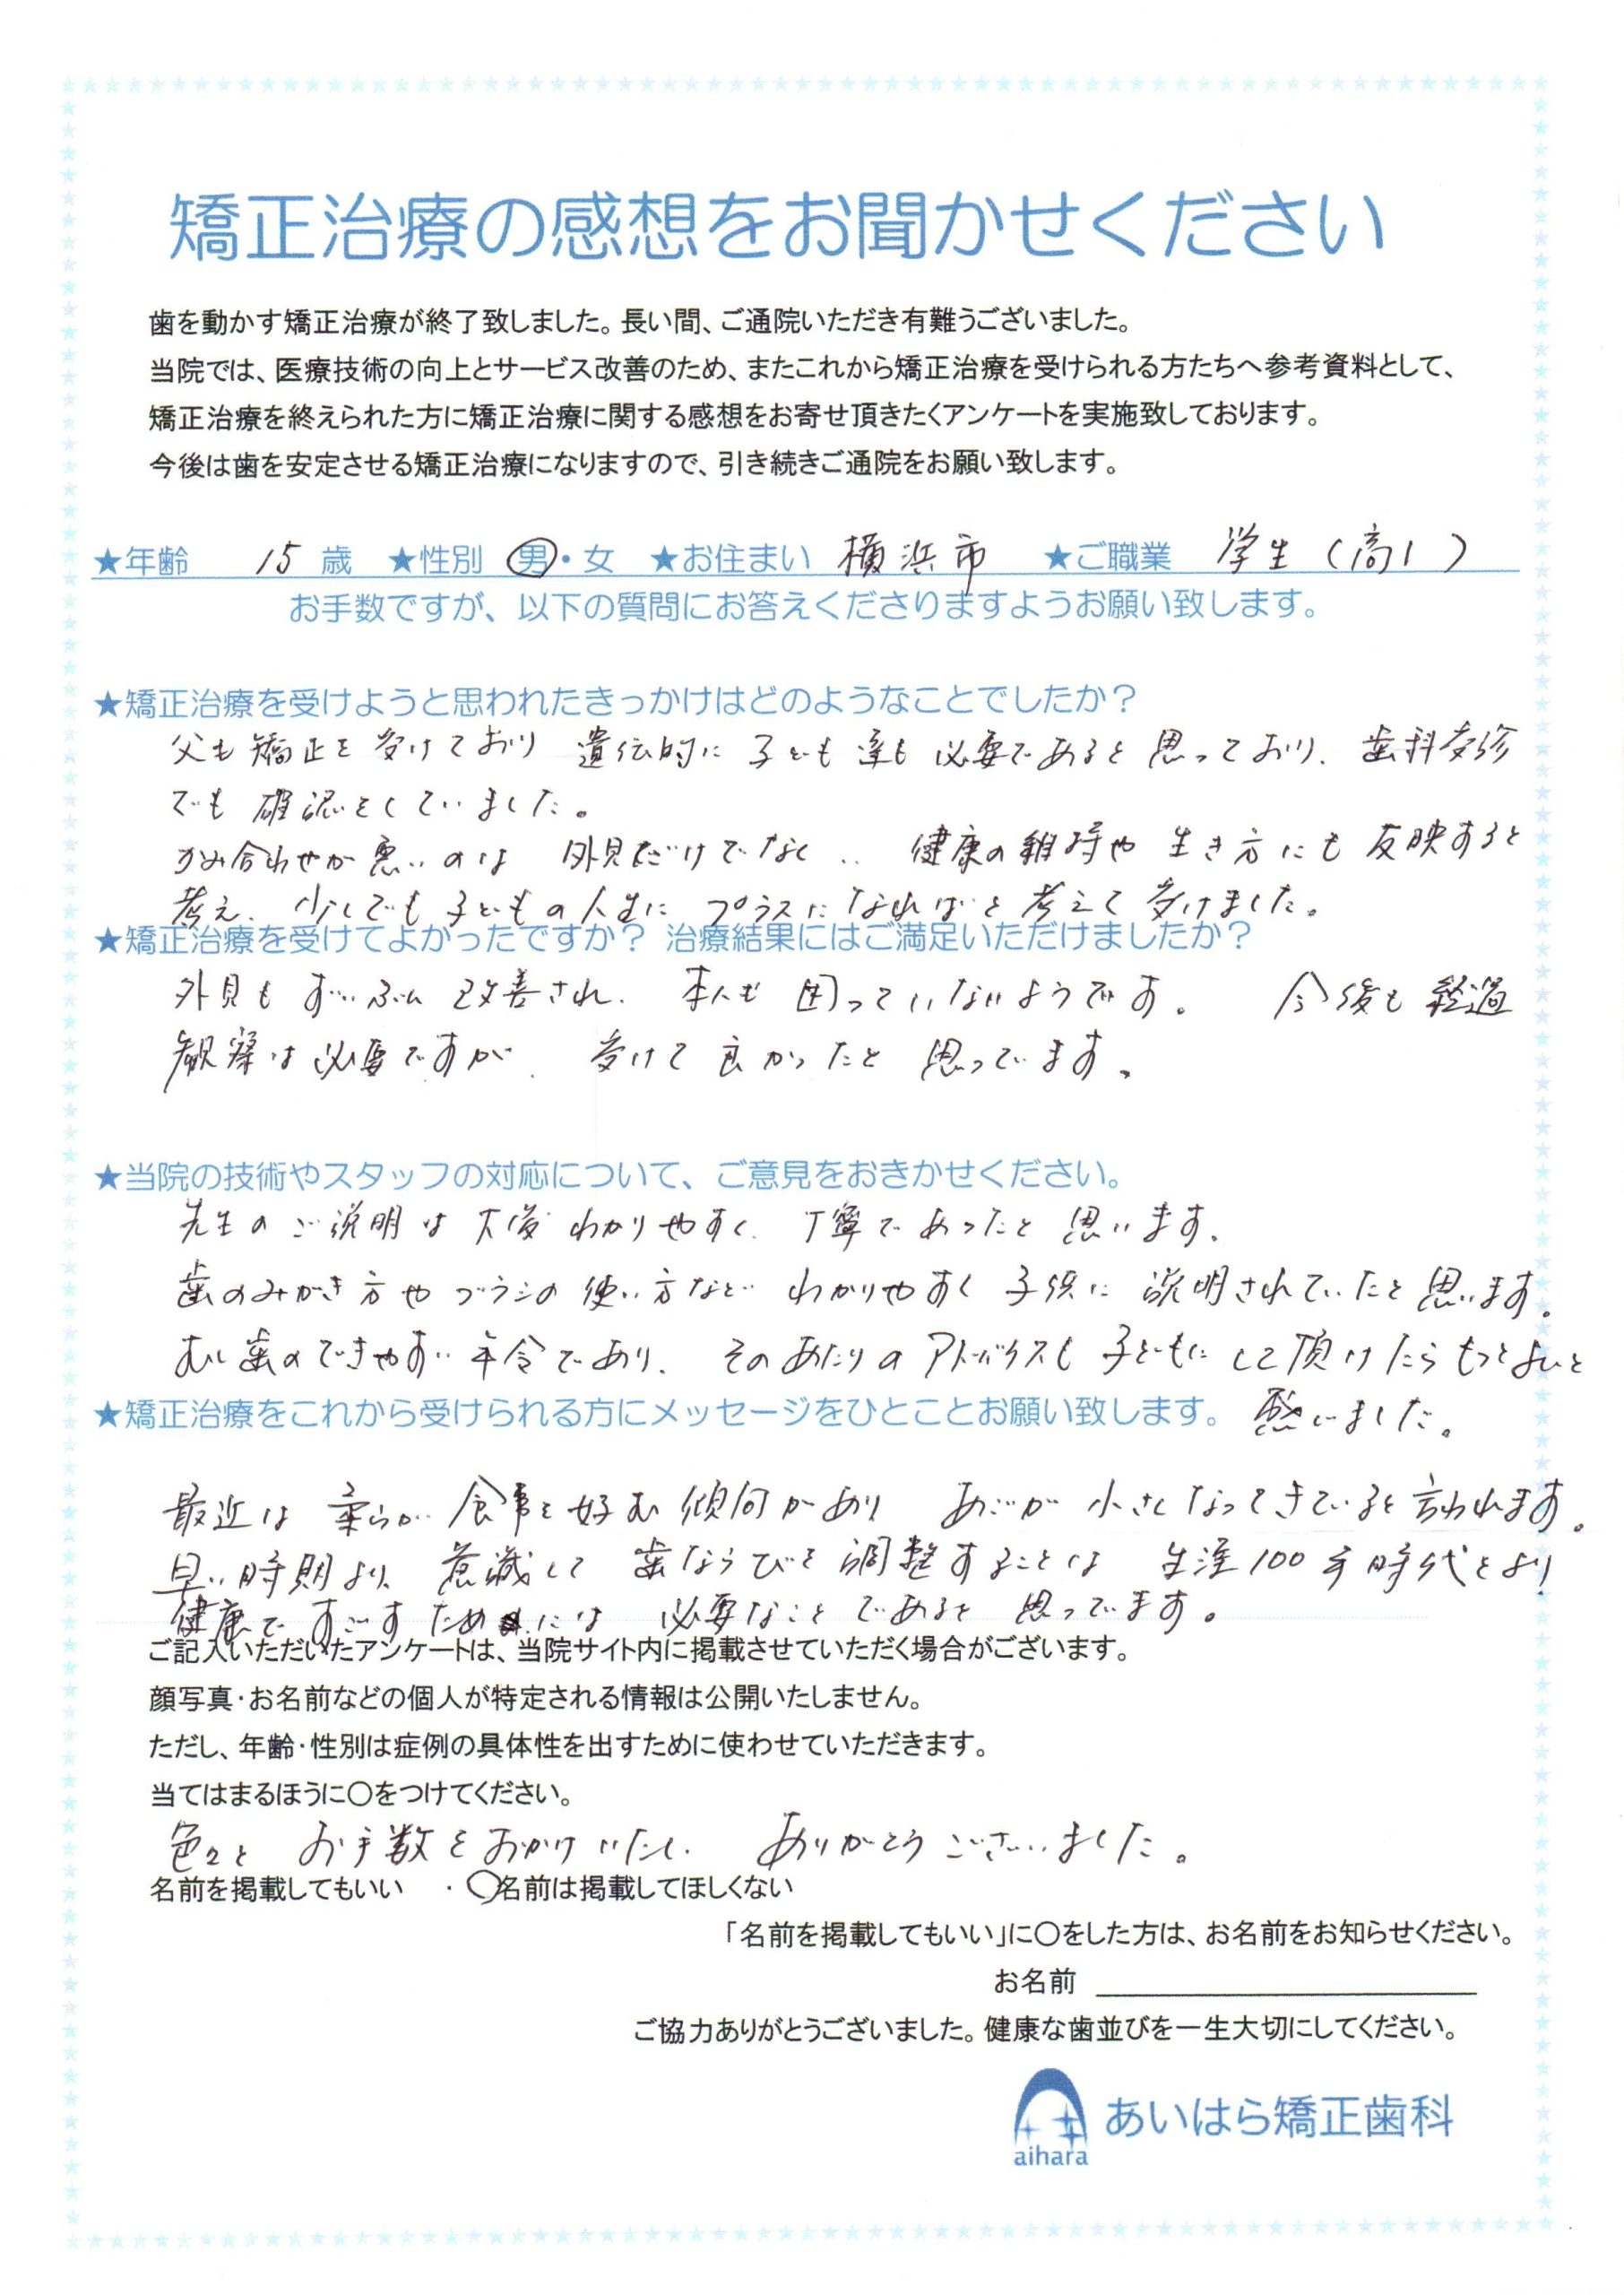 矯正治療の感想をお聞かせください
歯を動かす矯正治療が終了致しました。長い間、ご通院いただき有難うございました。
当院では、医療技術の向上とサービス改善のため、またこれから矯正治療を受けられる方たちへ参考資料として、
矯正治療を終えられた方に矯正治療に関する感想をお寄せ頂きたくアンケートを実施致しております。
今後は歯を安定させる矯正治療になりますので、引き続きご通院をお願い致します。
★年齢 15 歳 ★性別 男・女 ★お住まい 横浜市 ★ご職業 学生（高1）
お手数ですが、以下の質問にお答えくださりますようお願い致します。
★矯正治療を受けようと思われたきっかけはどのようなことでしたか？
父も矯正を受けており 遺伝的に子ども達も必要であると思っており、歯科受診
でも確認をしていました。
かみ合わせが悪いのは 外見だけでなく、健康の維持や生き方にも反映すると
考え、少しでも子どもの人生にプラスになればと考えて受けました。
★矯正治療を受けてよかったですか？ 治療結果にはご満足いただけましたか？
外見もずいぶん改善され、本人も困っていないようです。 今後も経過
観察は必要ですが、受けて良かったと思っています。
★当院の技術やスタッフの対応について、ご意見をおきかせください。
先生のご説明は大変わかりやすく、丁寧であったと思います。
歯のみがき方やブラシの使い方など わかりやすく子供に説明されていたと思います。
むし歯のできやすい年令であり、そのあたりのアドバイスも子どもにして頂けたらもっとよいと
★矯正治療をこれから受けられる方にメッセージをひとことお願い致します。 感じました。
最近は柔らかい食事を好む傾向があり あごが小さくなってきていると言われます。
早い時期より、意識して 歯ならびを調整することは 生涯100年時代をより
健康ですごすためには 必要なことであると思っています。
ご記入いただいたアンケートは、当院サイト内に掲載させていただく場合がございます。
顔写真・お名前などの個人が特定される情報は公開いたしません。
ただし、年齢・性別は症例の具体性を出すために使わせていただきます。
当てはまるほうに〇をつけてください。
色々とお手数をおかけいたし、ありがとうございました。
名前を掲載してもいい ・〇名前は掲載してほしくない
「名前を掲載してもいい」に〇をした方は、お名前をお知らせください。
お名前
ご協力ありがとうございました。健康な歯並びを一生大切にしてください。
あいはら矯正歯科
aihara